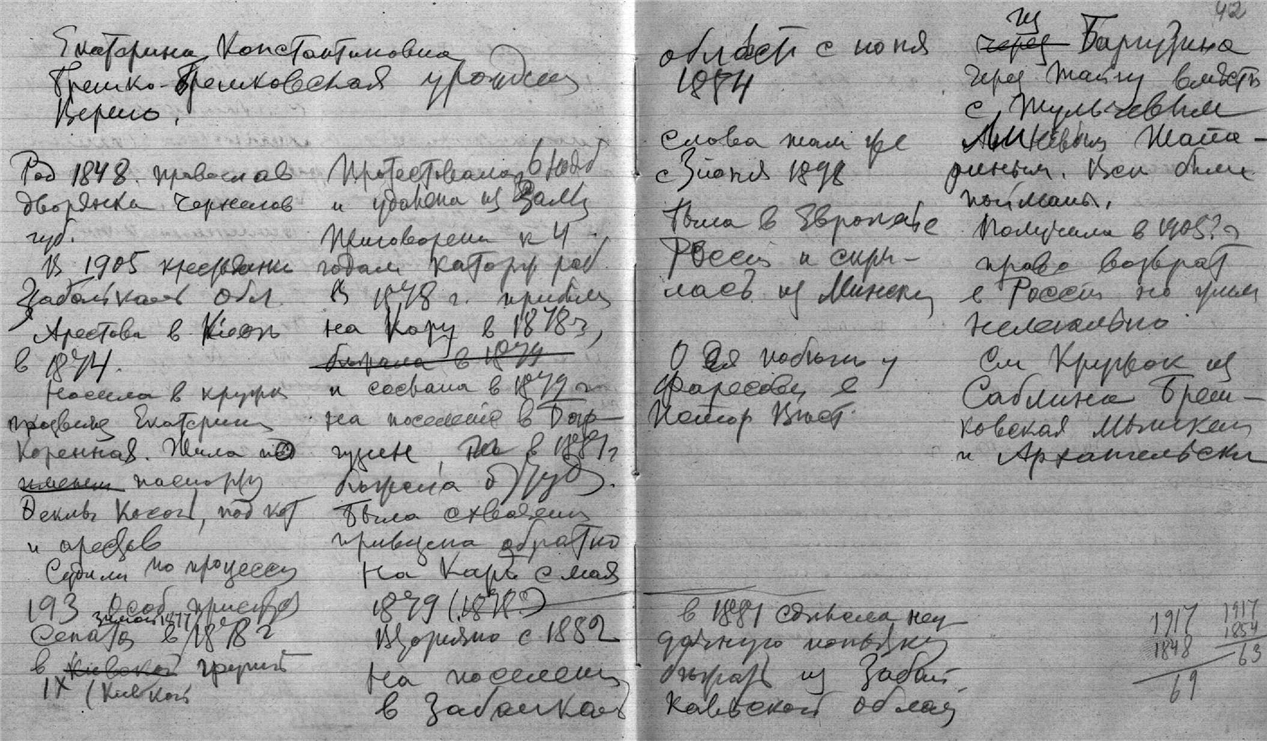 42
Екатерина Константиновна
Брешко-Брешковская урожден
Вериго.
Род 1848. православ
дворянка Чернигов
губ.
В 1905 крестьянк
Забайкальс обл.
Арестова в Киев
в 1874.
Носила в кружк
прозвище Екатерин
Коренная. Жила по
паспорту
Феклы Косой, под кот
и арестов
Судили по процессу
193 Особ присут
зимой 1877
Сената в 1878 г
в группе
IX (Киевской
Протестовала
и удалена из залы
Приговорена к 4
годам каторж раб.
В 1878 г. прибыл
на Кару в 1878 г,
бежала в 1879
и сослана в 1879 г
на поселение в Барг
гузин, в 1881 г
бежала
Была схвачена
привезена обратно
на Кару с мая
1879 (1878?)
Вторично с 1882
на поселении
в Забайкал
области с июня
1884
слова там же
с июня 1898
Была в Европейс
России и скры-
лась из Минска
О ея побеге у
Фаресова в
Истор Вест.
в 1881 сделала неу
дачную попытку
бежать из Забай
кальской област
из
через Баргузина
через тайгу вместе
с Тютчевым
Линевым Шама-
риным. Все были
пойманы.
Получила в 1905?
право возврат
в Россию но
нелегально
См Кружок из
Саблина Бреш-
ковская Мышкин
и Архангельск
1917
1848
69
1917
1854
63